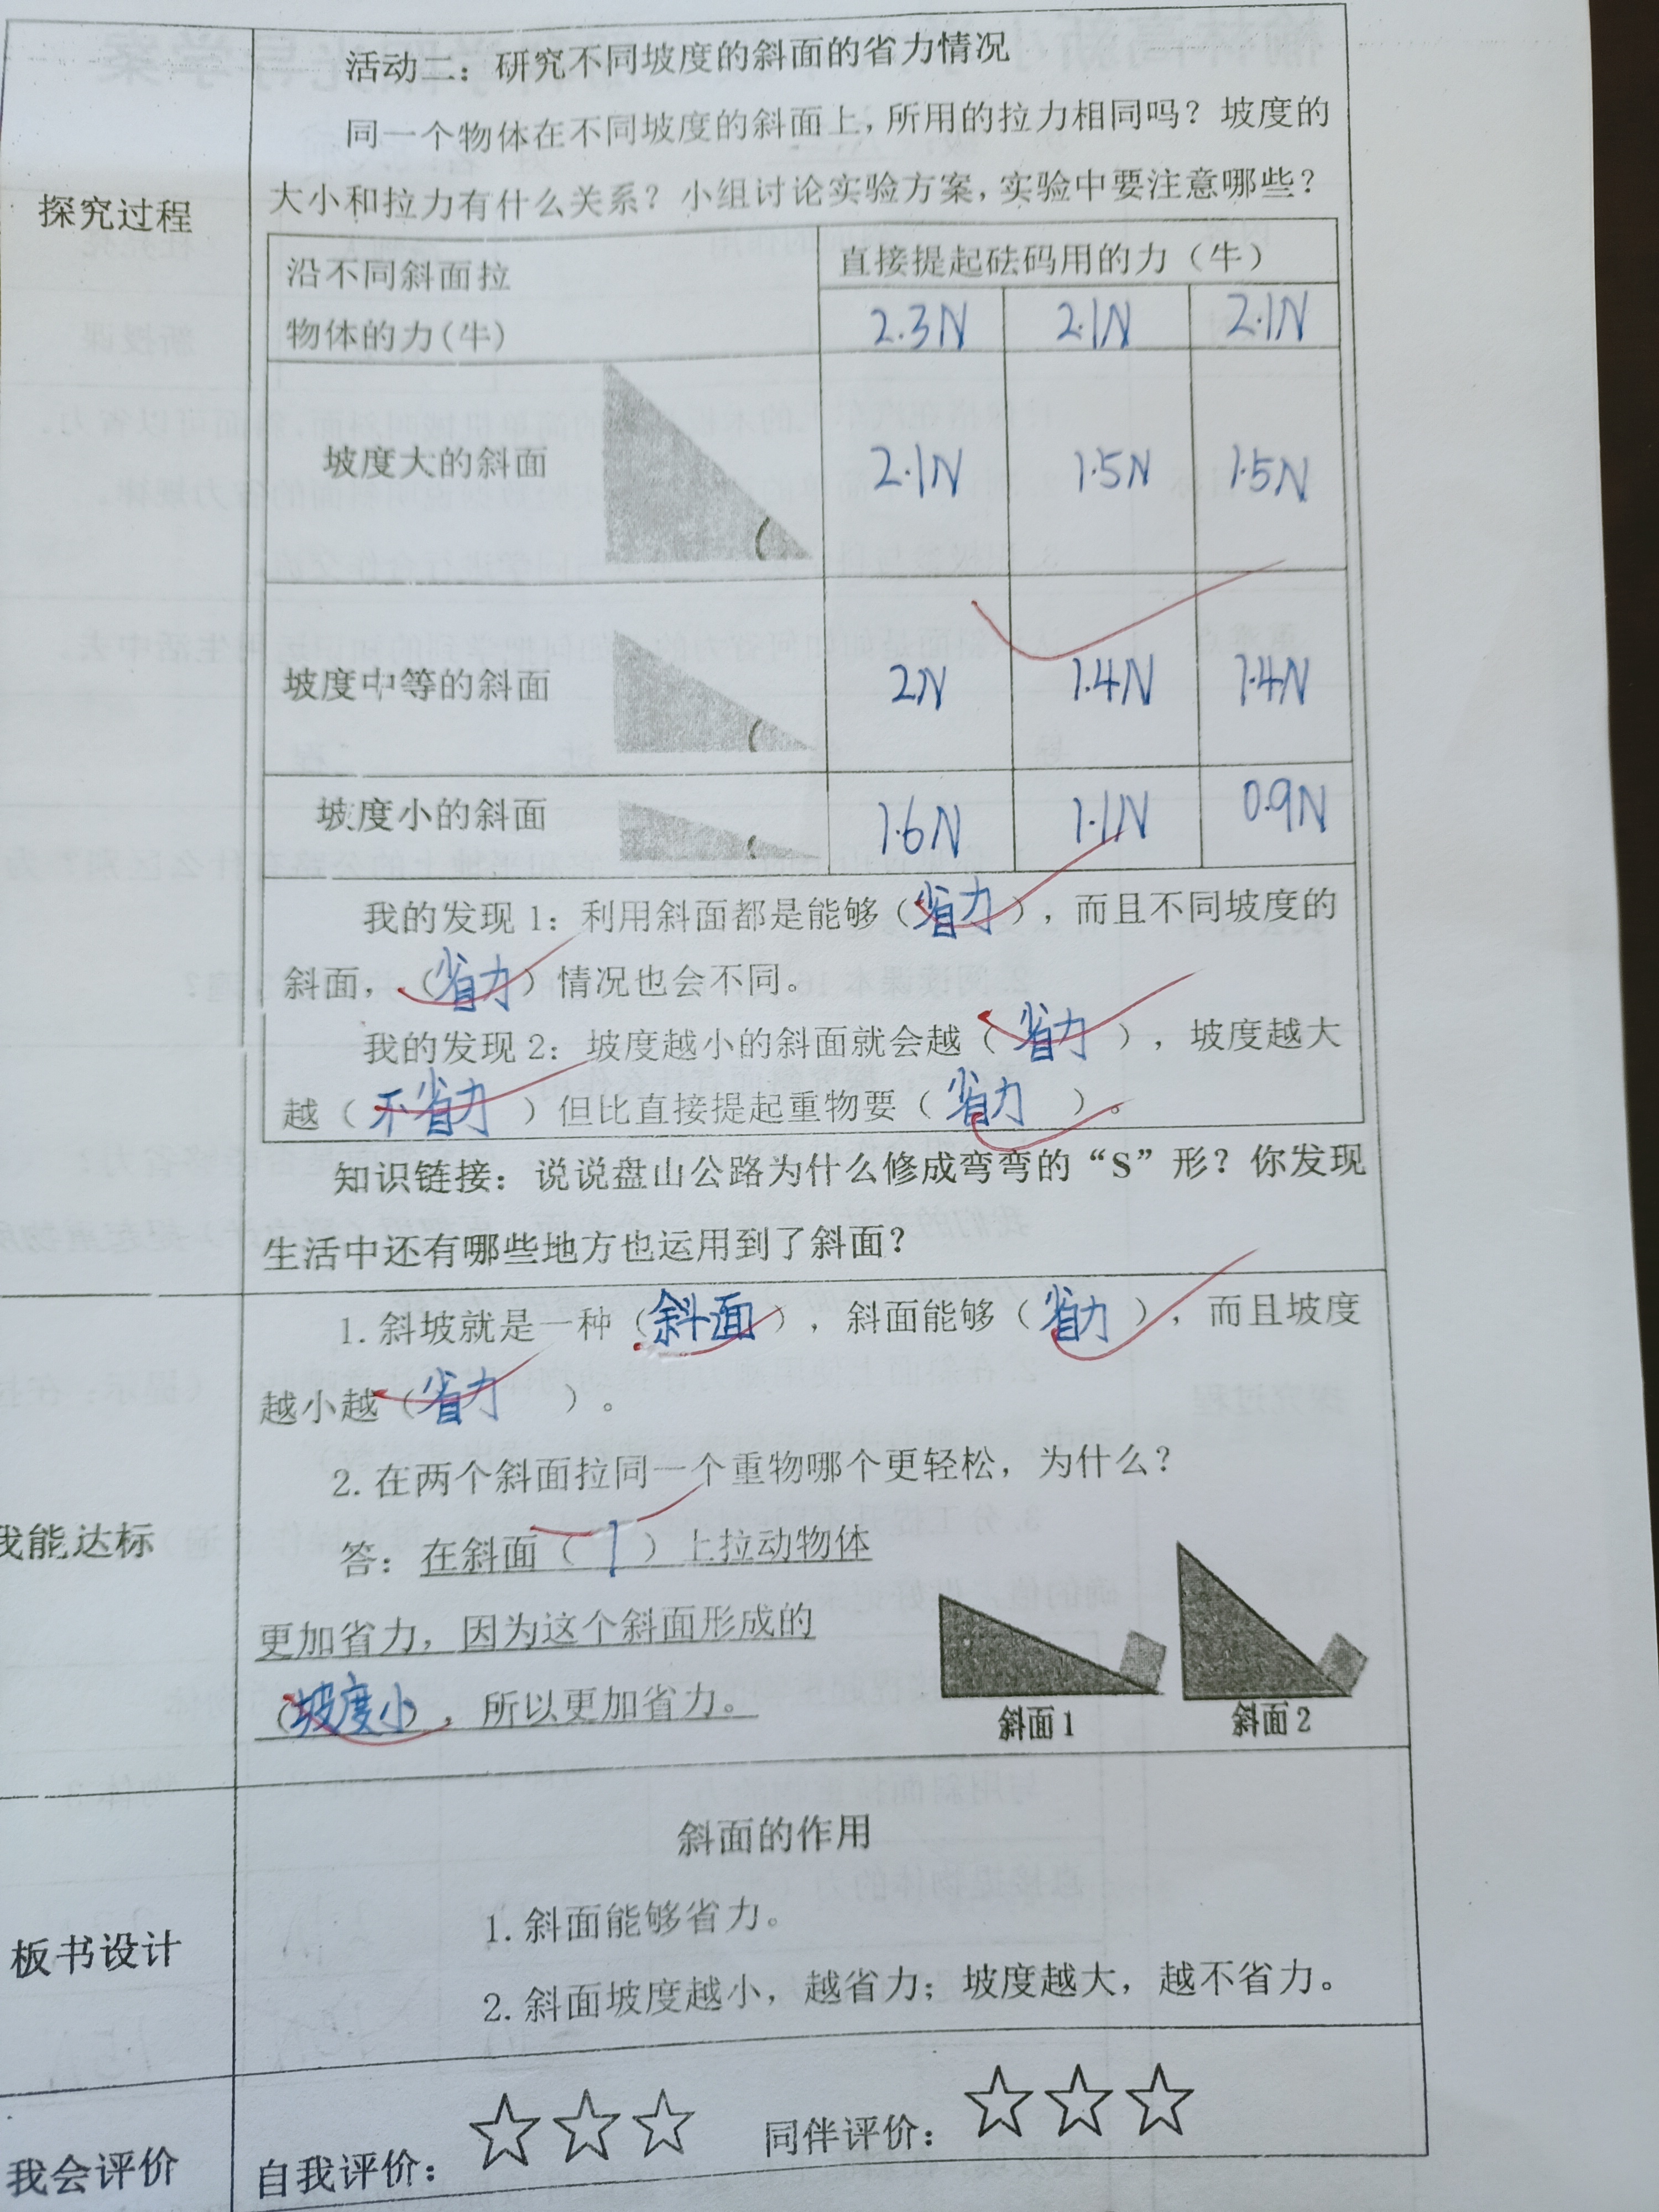 活动二：研究不同坡度的斜面的省力情况
同一个物体在不同坡度的斜面上，所用的拉力相同吗？坡度的
大小和拉力有什么关系？小组讨论实验方案，实验中要注意哪些？
探究过程
沿不同斜面拉
物体的力(牛)
直接提起砝码用的力（牛）
2.3N 2.1N 2.1N
坡度大的斜面 2.1N 1.5N 1.5N
坡度中等的斜面 2N 1.4N 1.4N
坡度小的斜面 1.6N 1.1N 0.9N
我的发现1：利用斜面都是能够（省力），而且不同坡度的
斜面，（省力）情况也会不同。
我的发现2：坡度越小的斜面就会越（省力），坡度越大
越（不省力）但比直接提起重物要（省力）。
知识链接：说说盘山公路为什么修成弯弯的“S”形？你发现
生活中还有哪些地方也运用到了斜面？
我能达标
1.斜坡就是一种（斜面），斜面能够（省力），而且坡度
越小越（省力）。
2.在两个斜面拉同一个重物哪个更轻松，为什么？
答：在斜面（1）上拉动物体
更加省力，因为这个斜面形成的
（坡度小），所以更加省力。
斜面1 斜面2
板书设计
斜面的作用
1.斜面能够省力。
2.斜面坡度越小，越省力；坡度越大，越不省力。
我会评价
自我评价：☆☆☆ 同伴评价：☆☆☆